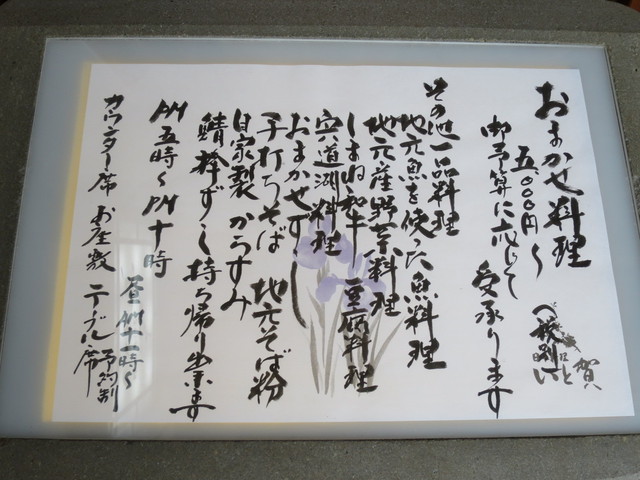 おまかせ料理
五,〇〇〇円〜
御予算に応じて
受承ります
その他一品料理
地元魚を使った魚料理
地元産野菜料理
しまね和牛 豆腐料理
宍道湖料理
おまかせずし
手打ちそば 地元そば粉
自家製 からすみ
鯖棒ずし持ち帰り出来ます
PM五時〜PM十時
昼AM十一時〜
カウンター席 お座敷 テーブル席
予約制